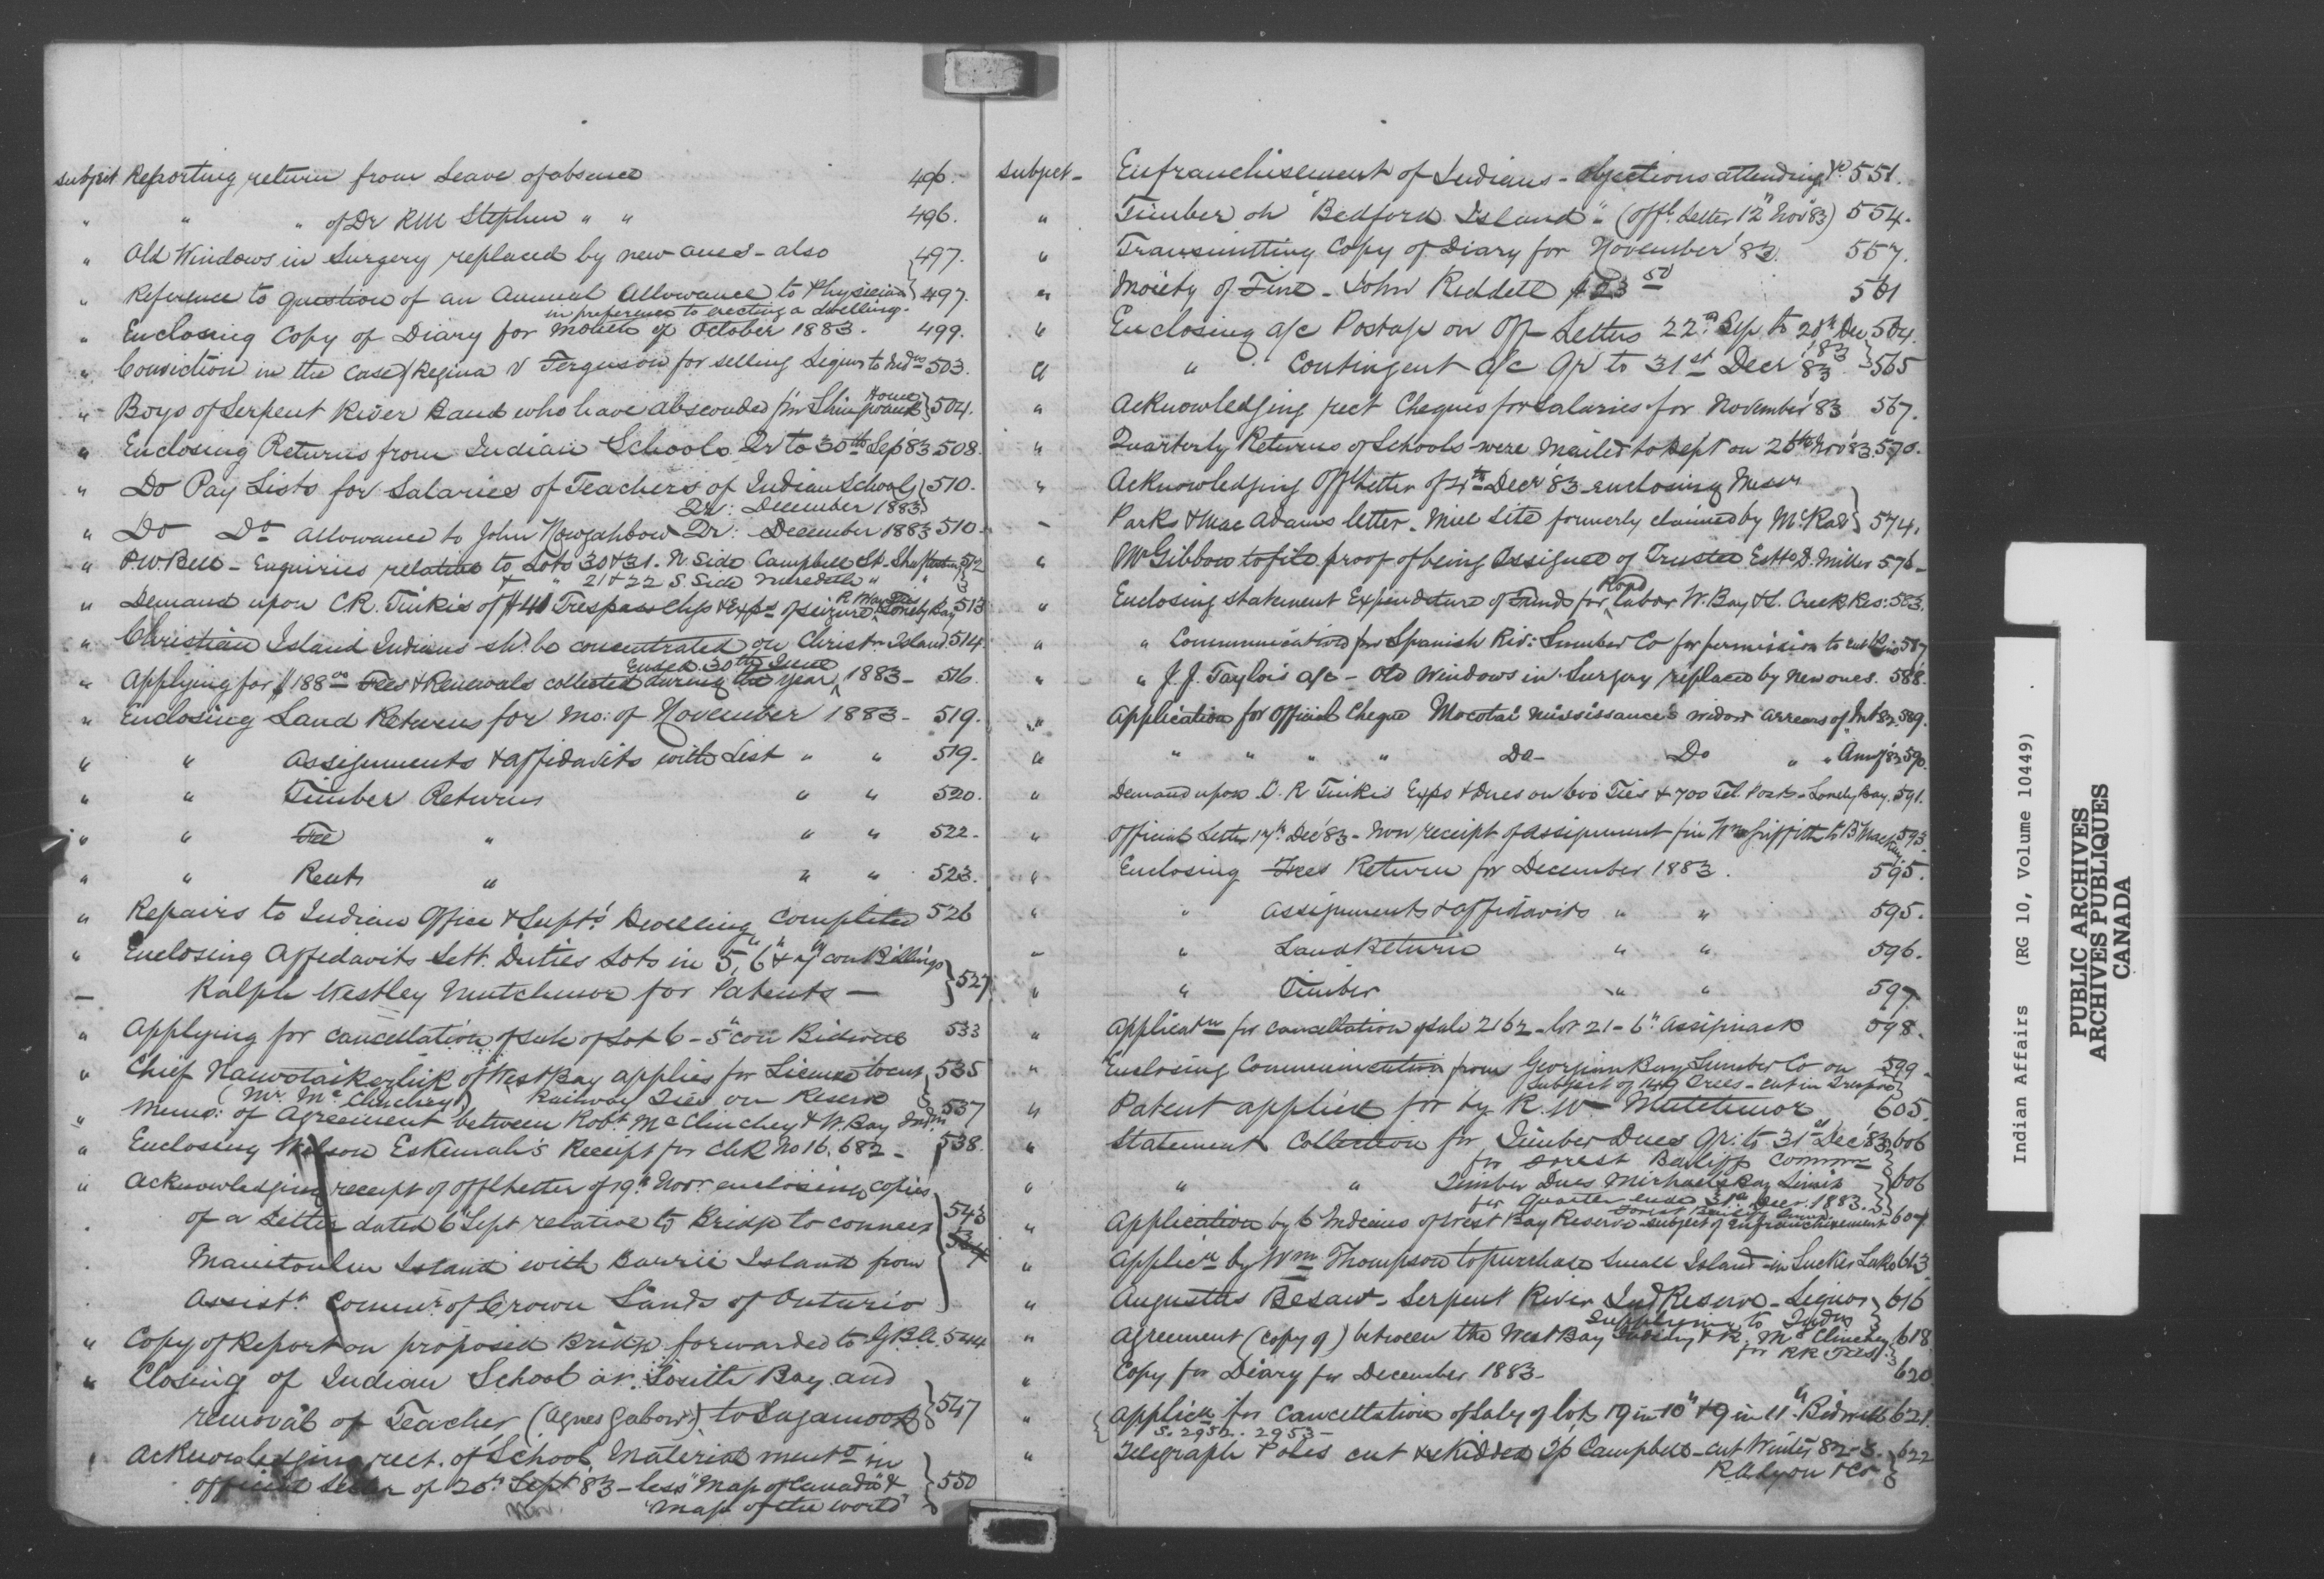 subject Reporting return from Leave of absence 496.
" " " of Dr RM Stephen " " 496.
" Old Windows in Surgery replaced by new ones - also } 497.
" Reference to question of an Annual Allowance to Physician } 497.
in preference to erecting a dwelling.
" Enclosing Copy of Diary for Month of October 1883. 499.
" Conviction in the case of Regina v Ferguson for selling Liquor to Inds 503.
" Boys of Serpent River Band who have absconded fm Shingwauk Home } 504.
" Enclosing Returns from Indian Schools Qr to 30th Sep '83 508.
" Do Pay Lists for Salaries of Teachers of Indian Schools } 510.
Qr: December 1883
" Do Do allowance to John Nowgahbow Qr: December 1883 510
" P.W. Bell - Enquiries relative to Lots 30 & 31. N Side Campbell St. 512
& " 21 & 22 S Side Meredith " "
" Demand upon C.R. Tinkis of $41 Trespass chgs & Exps of seizure Lonely Bay 513
" Christian Island Indians shd be concentrated on Christn Island. 514.
" Applying for $188.00 Fees & Renewals collected during the year ended 30th June 1883 - 516.
" Enclosing Land Returns for mo: of November 1883 - 519.
" " Assignments & affidavits with List " " 519.
" " Timber Returns " " 520.
" " Fee " " " 522 -
" " Rent " " " 523.
" Repairs to Indian Office & Supts' Dwelling completed 526
" Enclosing Affidavits Sett. Duties Lots in 5, 6 & 7 con Billings
— Ralph Westley Mutchmor for Patents — } 527
" Applying for cancellation of sale of Lot 6 - 5" con Bidwell 533
" Chief of West Bay applies for License to cut } 535
(Mr. McClinchey) Railway Ties on Reserve
" Memo: of Agreement between Robt McClinchey & W. Bay Indns 537
" Enclosing Wilson Eskemah's Receipt for Chk No 16.682 - 538.
" Acknowledging receipt of Offl Letter of 19" Novr enclosing copies
of a Letter dated 6" Sept relative to Bridge to connect } 543
Manitoulin Island with Barrie Island from 534
Assist. Commr. of Crown Lands of Ontario
" Copy of Report on proposed Bridge forwarded to G.B.A. 544
" Closing of Indian School at South Bay and
removal of Teacher (Agnes Gabow) to Sagamook } 547
" Acknowledging rect. of School Material mentd in
official Letter of 26th Sept '83 - less "Map of Canada" & } 550
Nov. "Map of the World"
subject - Enfranchisement of Indians - Objections attending &c 551.
" Timber on "Bedford Island" - (Offl Letter 12" Nov '83) 554.
" Transmitting Copy of Diary for November '83. 557.
" Moiety of Fine - John Reddett $23 50 561
" Enclosing a/c Postage on Off Letters 22nd Sep. to 20th Dec '83 564.
" " Contingent a/c Qr to 31st Decr 83 } 565
" Acknowledging rect Cheques for Salaries for November '83 567.
" Quarterly Returns of Schools were mailed to Dept on 26th Nov '83. 570.
" Acknowledging Off Letter of 4th Decr '83 enclosing Messr
- Parks & MacAdams letter - Mill Site formerly claimed by McRae } 574.
" McGibbon to file proof of being Assignee of Trustee Est H.D. Miller 576 -
" Enclosing statement Expenditure of Funds for Road Labor W. Bay & S. Creek Res: 583.
" " Communication fm Spanish Riv: Lumber Co for permission to cut 587
" " J.J. Taylor's a/c - Old Windows in Surgery replaced by New ones. 588.
" Application for Official Cheque Mocotai Mississance's widow Arrears of Int 82. 589.
" " " " " Do - Do " " Anny '83 590.
" Demand upon C.R Tinkis Exps & Dues on 600 Ties & 700 Tel. Posts - Lonely Bay. 591.
" Official Letter 17th Dec '83 - Non receipt of assignment fm Wm Griffith to B. Mackay 593.
" Enclosing Fees Return for December 1883. 595.
" " Assignments & affidavits " " 595.
- " Land Return " " 596.
" " Timber " " 597.
" Applicatn for cancellation of sale 2162 - lot 21 - 6" Assiginack 598.
" Enclosing Communication from Georgian Bay Lumber Co on 599 -
subject of 149 Trees - cut in Trespass }
" Patent applied for by R.W. Mutchmor 605.
" Statement Collection for Timber Dues Qr: to 31st Dec '83 606
for Forest Bailiff Comm }
" " " Timber Dues Michael's Bay Limit } 606
for quarter ended 31st Decr. 1883.
" Application by 6 Indians of West Bay Reserve - subject of Enfranchisement 607.
" Applicn by Wm Thompson to purchase Small Island in Sucker Lake 613.
" Augustus Besaw - Serpent River Ind Reserve - Liquor } 616
supplying to Indns
" Agreement (copy of) between the West Bay Indians & R. McClinchey 618
for RR Ties }
" Copy for Diary for December 1883 - 620
" { Applicn for Cancellation of Sale of lots 19 in 10" & 9 in 11" Bidwell 621.
S. 2952. 2953 -
" Telegraph Poles cut & skidded Tp Campbell - cut Winter 82-3. } 622
R.A. Lyon & Co
Indian Affairs (RG 10, Volume 10449)
PUBLIC ARCHIVES
ARCHIVES PUBLIQUES
CANADA